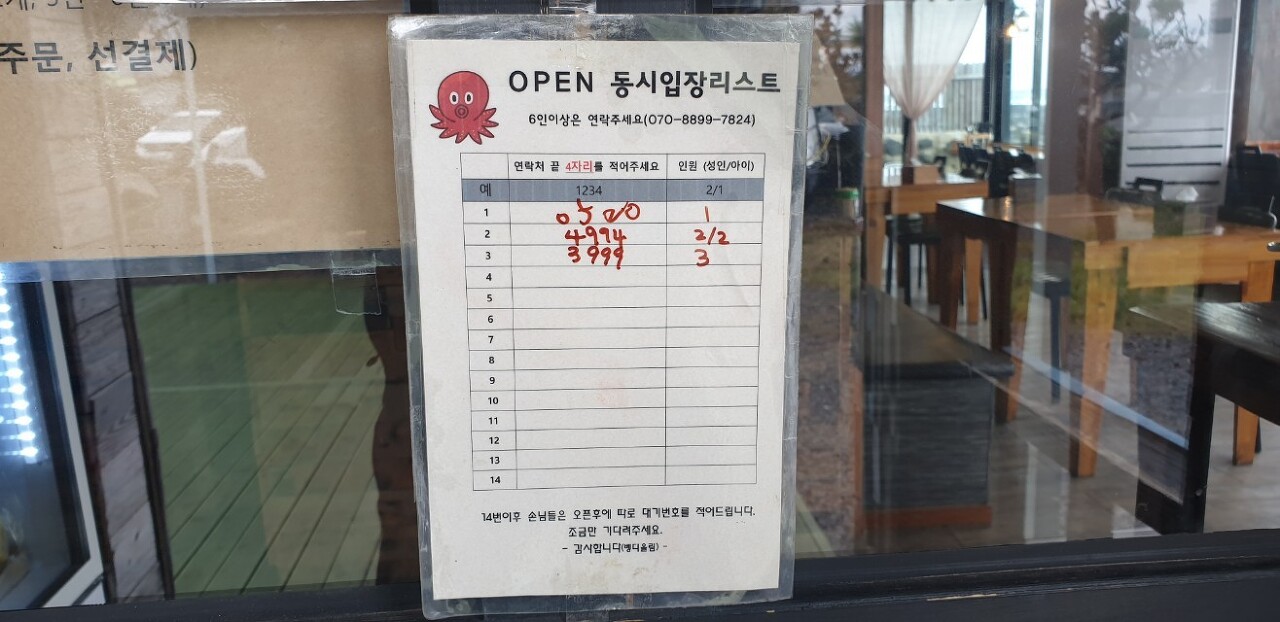 주문, 선결제)
OPEN 동시입장리스트
6인이상은 연락주세요(070-8899-7824)
연락처 끝 4자리를 적어주세요 인원 (성인/아이)
예 1234 2/1
1 0500 1
2 4994 2/2
3 3999 3
4
5
6
7
8
9
10
11
12
13
14
14번이후 손님들은 오픈후에 따로 대기번호를 적어드립니다.
조금만 기다려주세요.
- 감사합니다(벵디올림) -